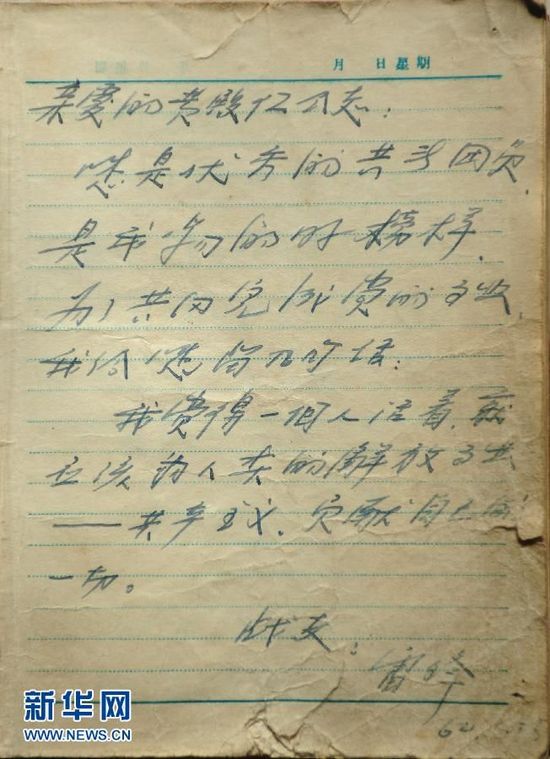 月 日 星期
亲爱的 殿仁同志:
您是优秀的共产团员,
是我学习的好榜样,
为了共同完成党的事业,
我给您留几句话:
我觉得一個人活着,就
应该为人类的解放事业
——共产主义,贡献自己的
一切。
战友:
雷锋
62.
新华网
WWW.NEWS.CN